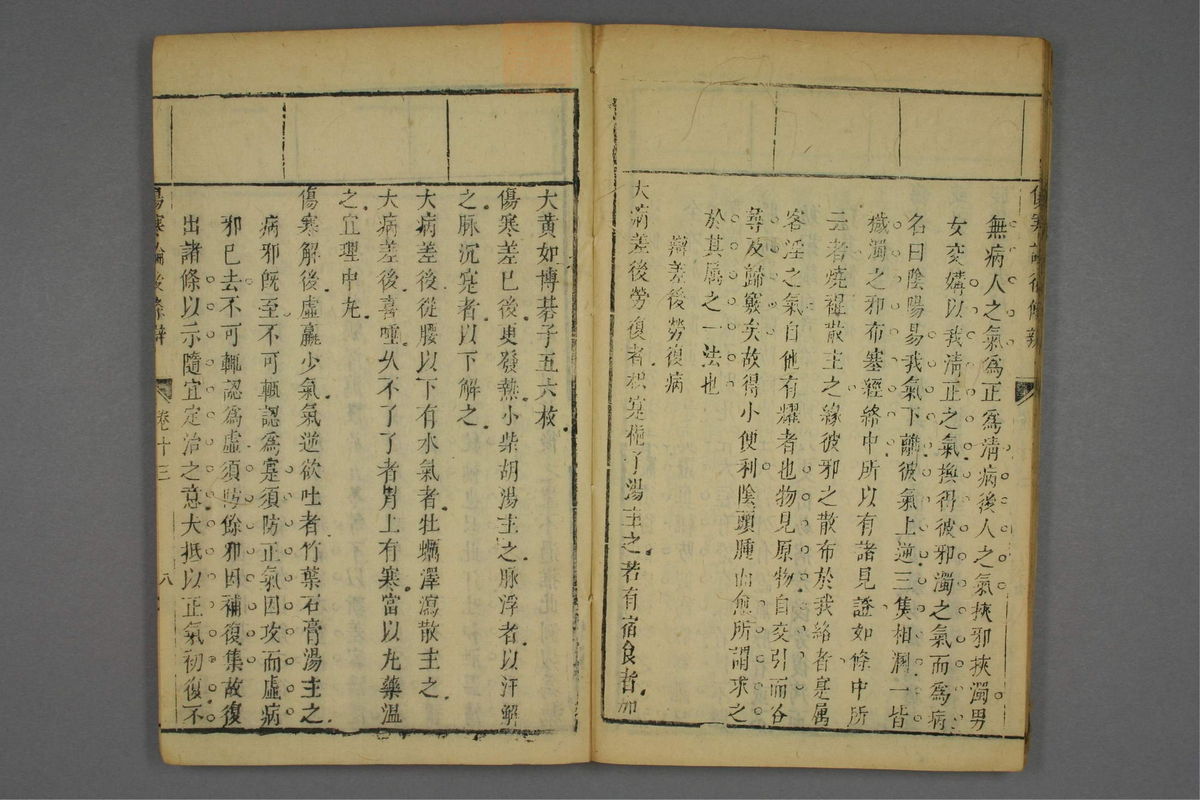 傷寒論後條辨
無病人之氣為正為淸病後人之氣挾邪挾濁男
女交媾以我淸正之氣換得彼邪濁之氣而為病
名曰陰陽易我氣下離彼氣上逆三焦相溷一皆
穢濁之邪布塞經絡中所以有諸見證如條中所
云者燒裩散主之緣彼邪之散布於我絡者寔屬
客淫之氣自他有耀者也物見原物自交引而谷
尋及歸竅矣故得小便利陰頭腫而愈所謂求之
於其属之一法也
辨差後勞復病
大病差後勞復者枳寔梔子湯主之若有宿食者加
大黃如博碁子五六枚
傷寒差已後更發熱小柴胡湯主之脉浮者以汗解
之脉沉寔者以下解之
大病差後從腰以下有水氣者牡蠣澤瀉散主之
大病差後喜唾久不了了者胃上有寒當以丸藥溫
之宜理中丸
傷寒解後虛羸少氣氣逆欲吐者竹葉石膏湯主之
病邪旣至不可輒認為寔須防正氣因攻而虛病
邪已去不可輒認為虛須防餘邪因補復集故復
出諸條以示隨宜定治之意大抵以正氣初復不
傷寒論後條辨 卷十三 八